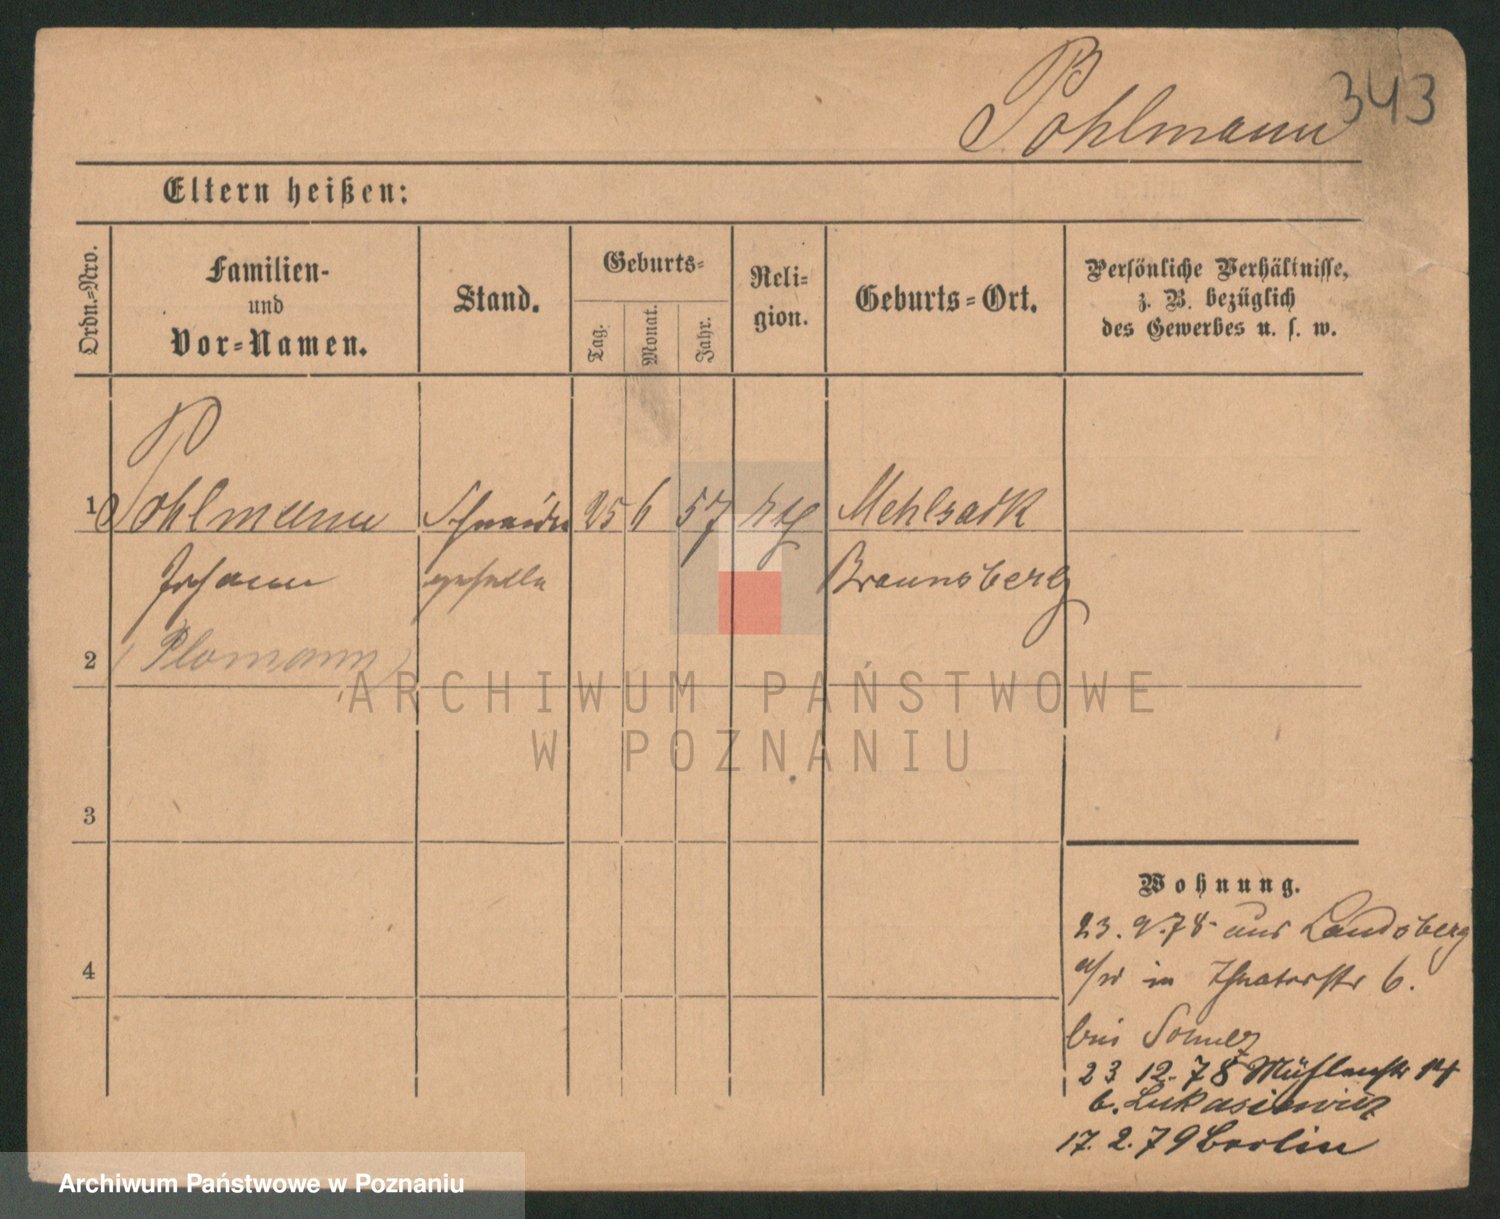 343
Pohlmann
Eltern heißen:
Ordn.=Nro.
Familien-
und
Vor=Namen.
Stand.
Geburts=
Tag.
Monat.
Jahr.
Reli=
gion.
Geburts=Ort.
Persönliche Verhältnisse,
z. B. bezüglich
des Gewerbes u. s. w.
1 Pohlmann Schneider 25 6 57 Mehlsack
Johann geselle Braunsberg
2 (Plomann)
3
4
Wohnung.
23. 9. 78 aus Landsberg
a/w in Theaterstr 6.
bei
23 12. 78 Mühlenstr 14
b. Lukasiewicz
17. 2. 79 Berlin
ARCHIWUM PAŃSTWOWE
W POZNANIU
Archiwum Państwowe w Poznaniu